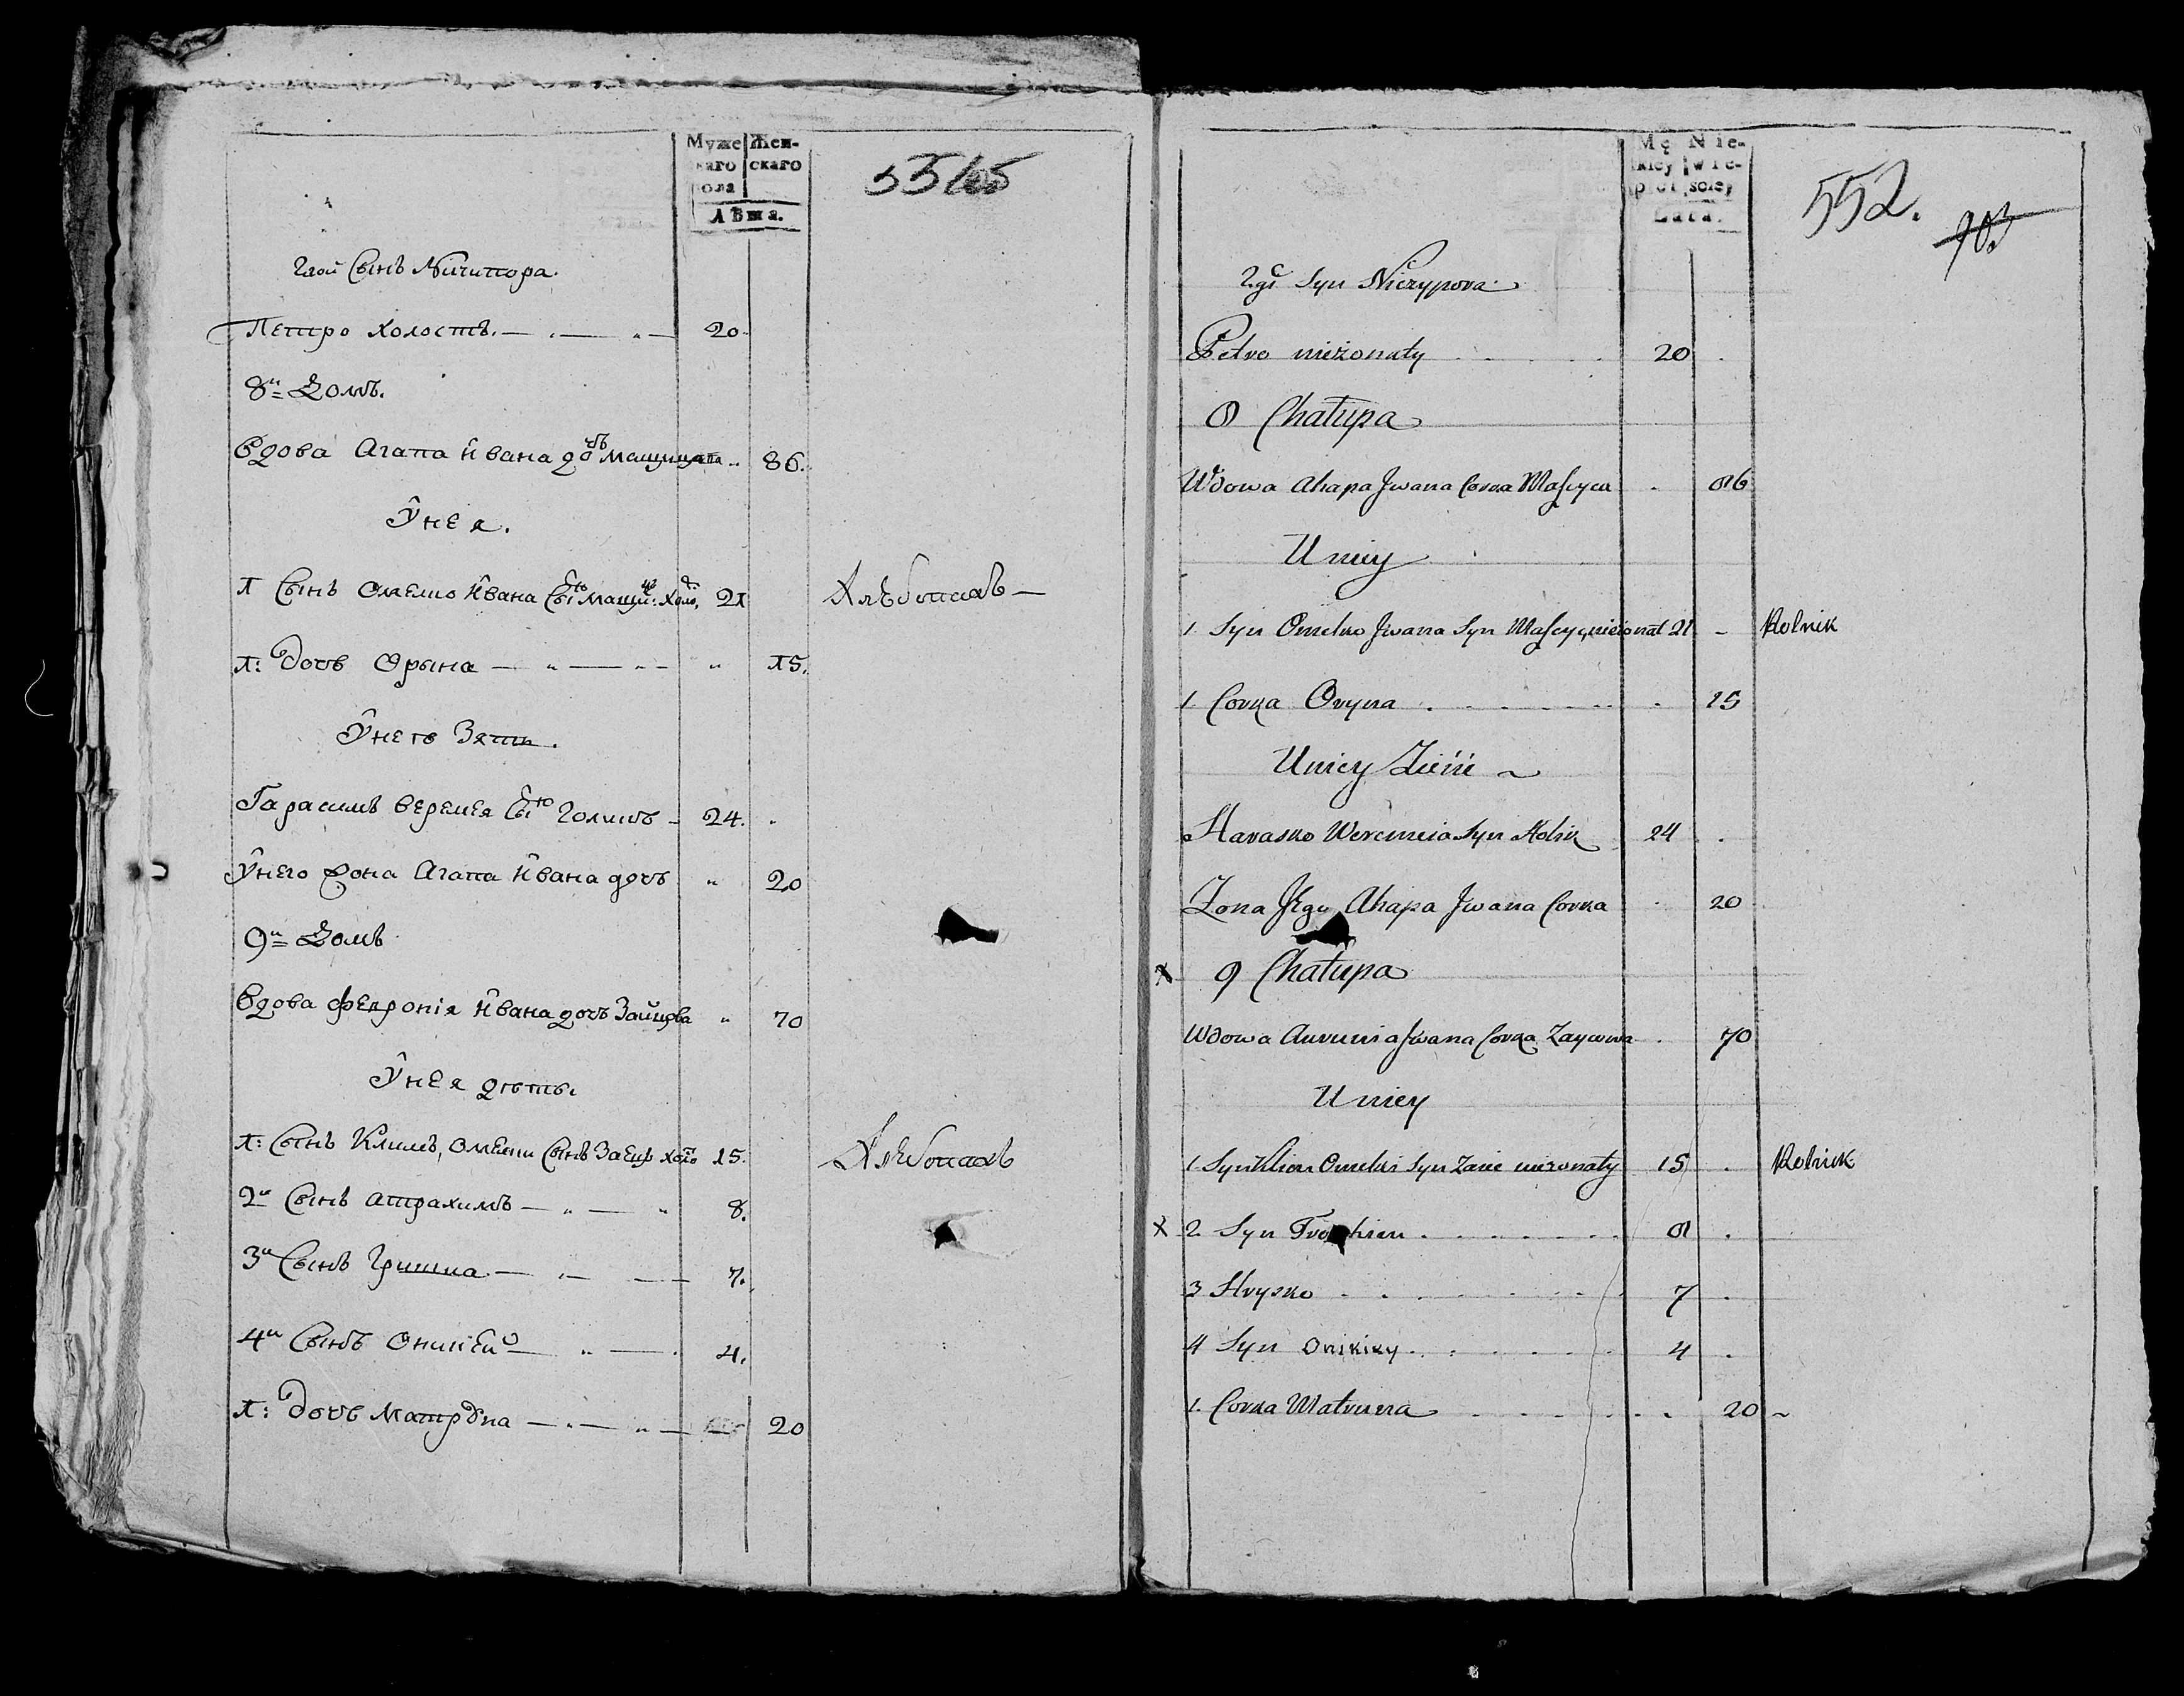 Муже Жен-
скаго скаго
пола
Лѣта.
2гой Сынъ Ничипора
Петро холостъ. 20
8й Домъ.
Вдова Агапа Ивана дочъ Мащицата 86.
Унея.
1 Сынъ Омелко Ивана Сынъ Мащиц: холо. 21 Хлѣбопашъ
1: Дочь Орына " 15.
Унего Зять.
Гарасимъ Веремея Сынъ Голикъ 24.
Унего жона Агапа Ивана дочъ " 20
9й Домъ
Вдова Февронія Ивана дочъ Зайцова " 70
Унея дѣты.
1: Сынъ Климъ, Омелки Сынъ Заецъ холо 15. Хлѣбопашъ
2й Сынъ Атрахимъ 8.
3й Сынъ Гришка 7.
4й Сынъ Оникѣй 4.
1: Дочь Матрона 20
Mę Nie-
skiey wie-
płci sciey
Lata.
552.
703
2.gi Syn Niczypora
Petro nieżonaty 20
8 Chałupa
Wdowa Ahapa Jwana Corka Maścyca 86
Uniey
1 Syn Omelko Jwana Syn Maścyc nieżonat 21 Rolnik
1. Corka Oryna 15
Uniey Zieńć
Harasko Weremeia Syn Holik 24
Zona Jego Ahapa Jwana Corka 20
x 9 Chałupa
Wdowa Jwana Corka Zaycowa 70
Uniey
1. Syn Klim Omelki Syn Zaiec nieżonaty 15 Rolnik
x 2. Syn 8
3 Hrysko 7
4 Syn Onikiey 4
1. Corka Matruna 20